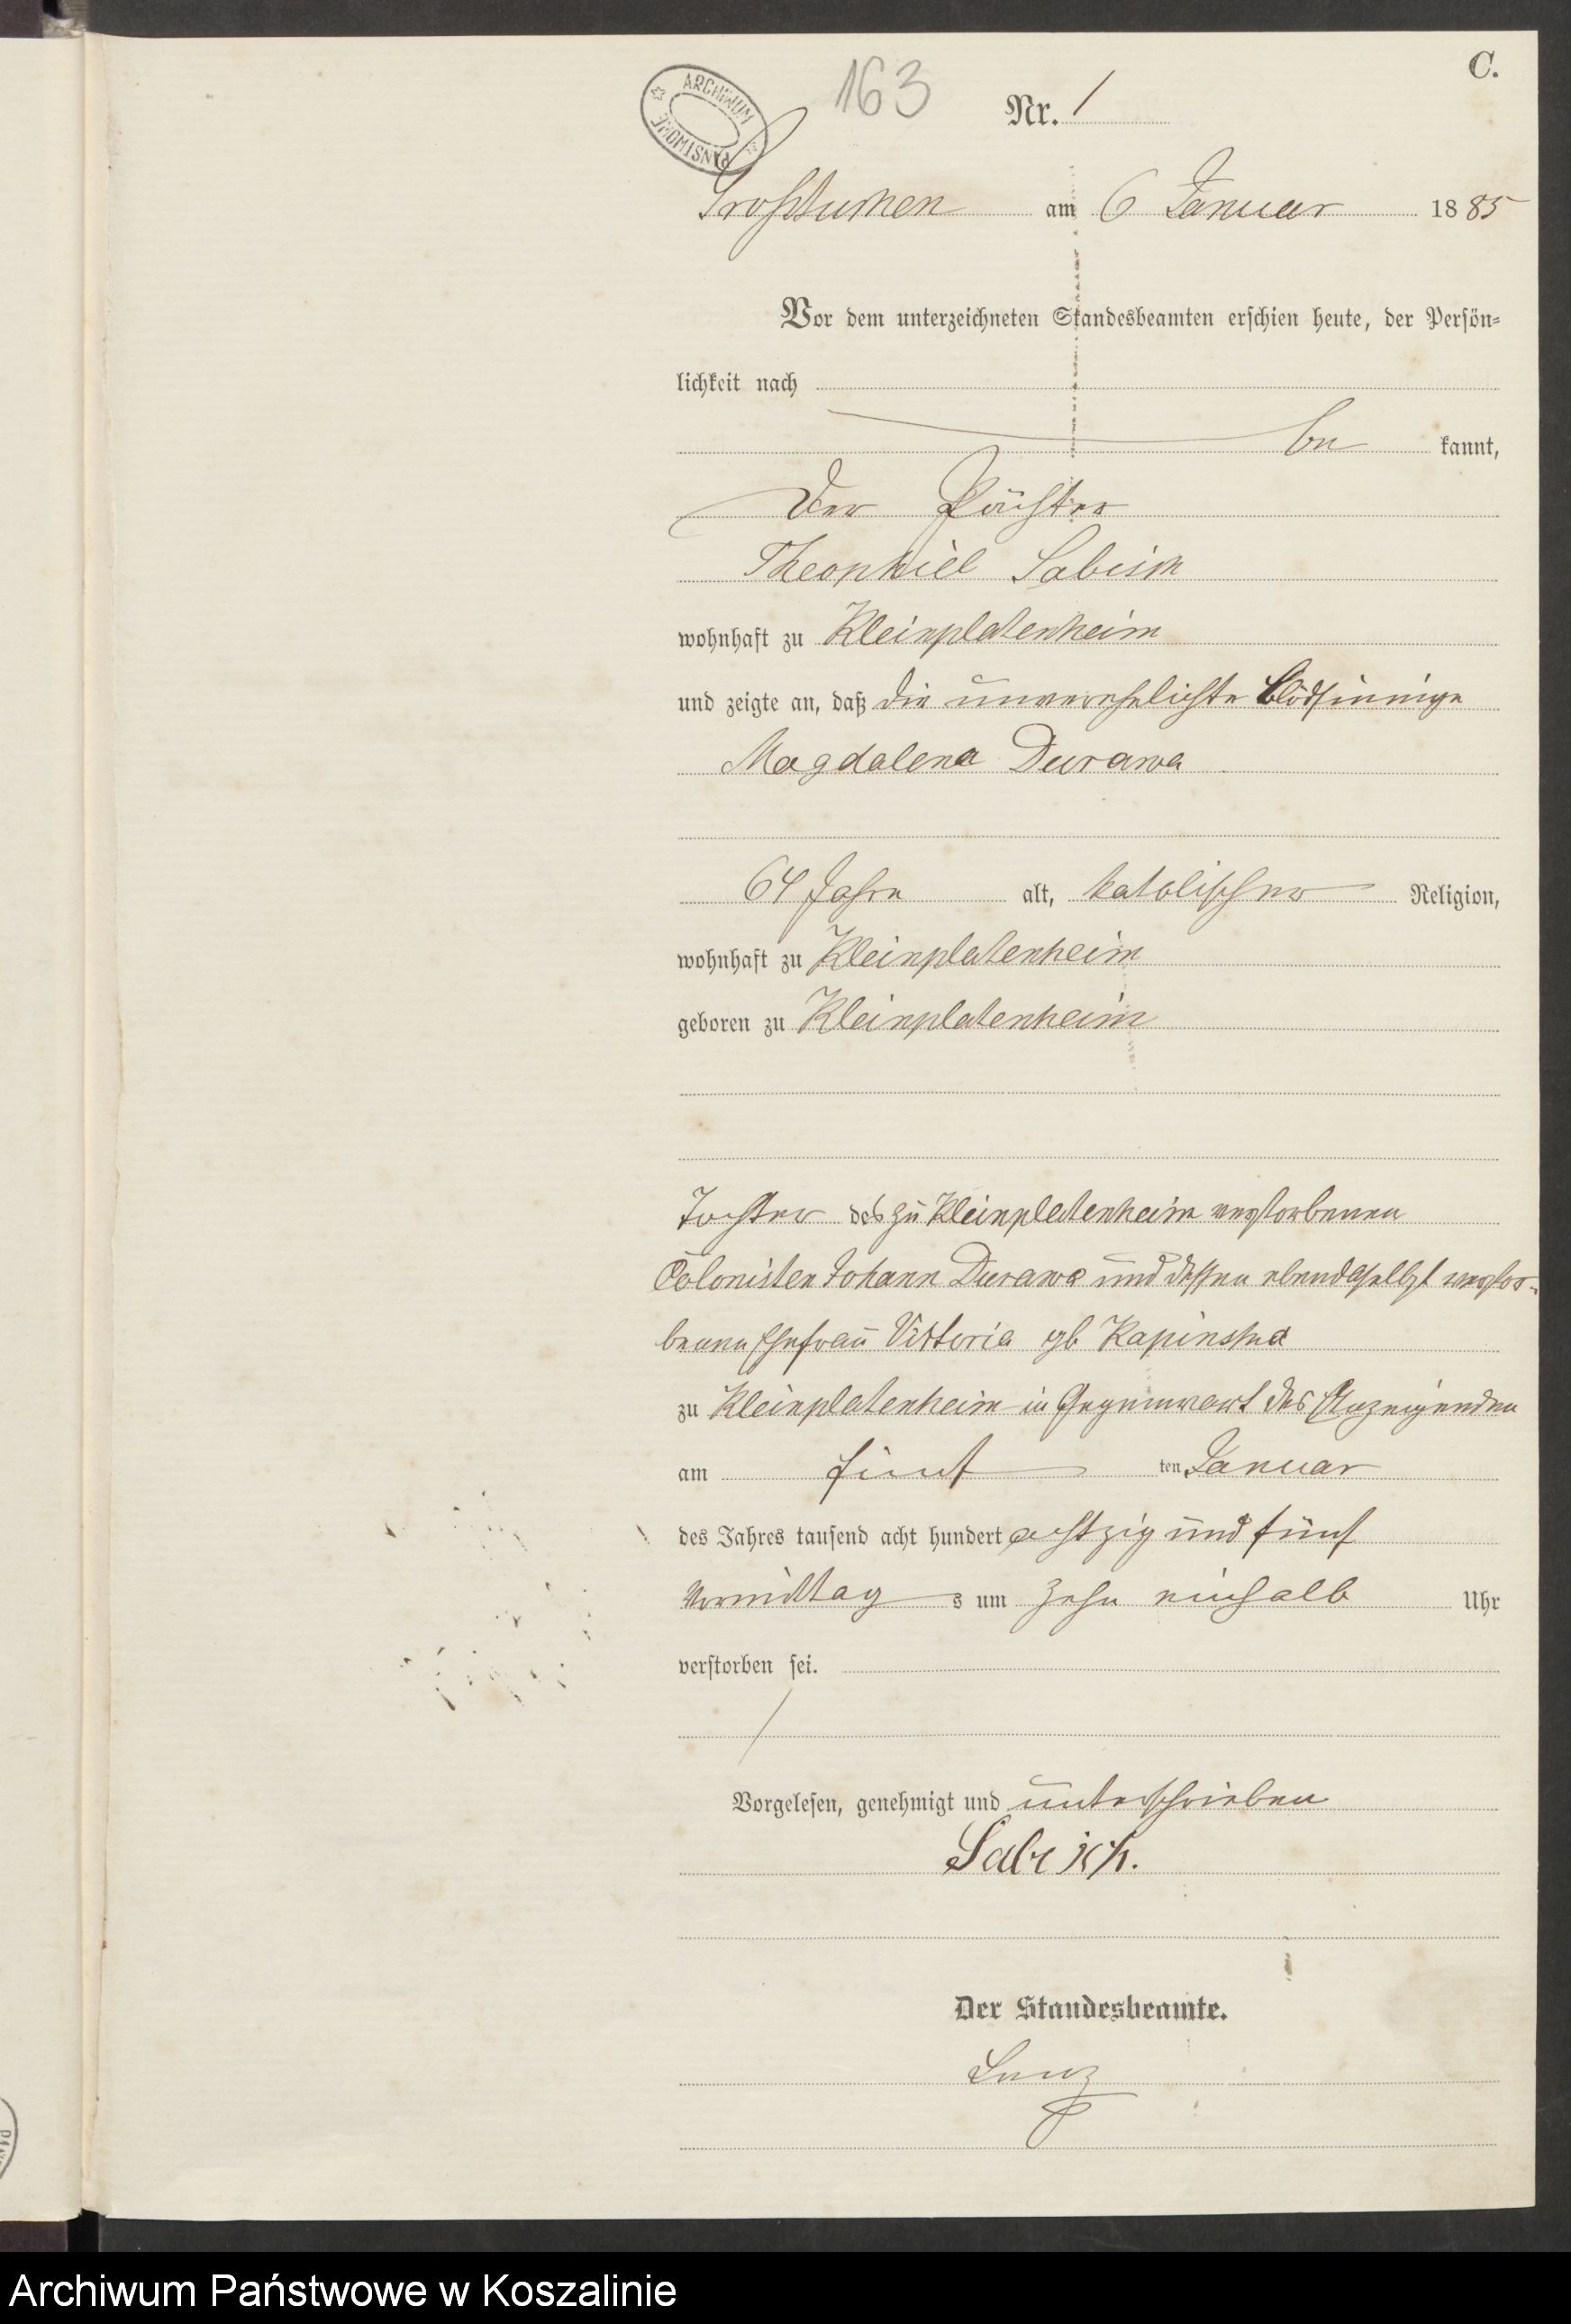 C.
163
ARCHIWUM PAŃSTWOWE
Nr. 1
Großtuchen am 6 Januar 1885
Vor dem unterzeichneten Standesbeamten erschien heute, der Persön-
lichkeit nach
be kannt,
Der Pächter
Theophiel Sabisch
wohnhaft zu Kleinplatenheim
und zeigte an, daß die unverehelichte blödsinnige
Magdalena Durawa
64 Jahre alt, katolischer Religion,
wohnhaft zu Kleinplatenheim
geboren zu Kleinplatenheim
Tochter des zu Kleinplatenheim verstorbenen
Colonisten Johann Durawa und dessen ebendaselbst verstor-
benen Ehefrau Viktoria gb
zu Kleinplatenheim in Gegenwart des Anzeigenden
am fünf ten Januar
des Jahres tausend acht hundert achtzig und fünf
Vormittag s um zehn einhalb Uhr
verstorben sei.
Vorgelesen, genehmigt und unterschrieben
Sabisch.
Der Standesbeamte.
Archiwum Państwowe w Koszalinie